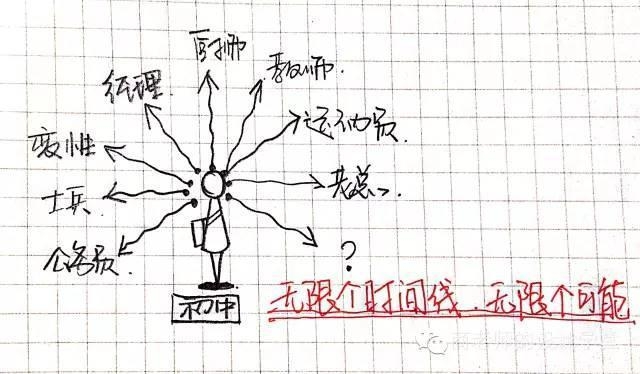 厨师
教师.
经理.
运动员
变性
士兵
老总、
公务员.
?
无限个时间线、无限个可能
初中